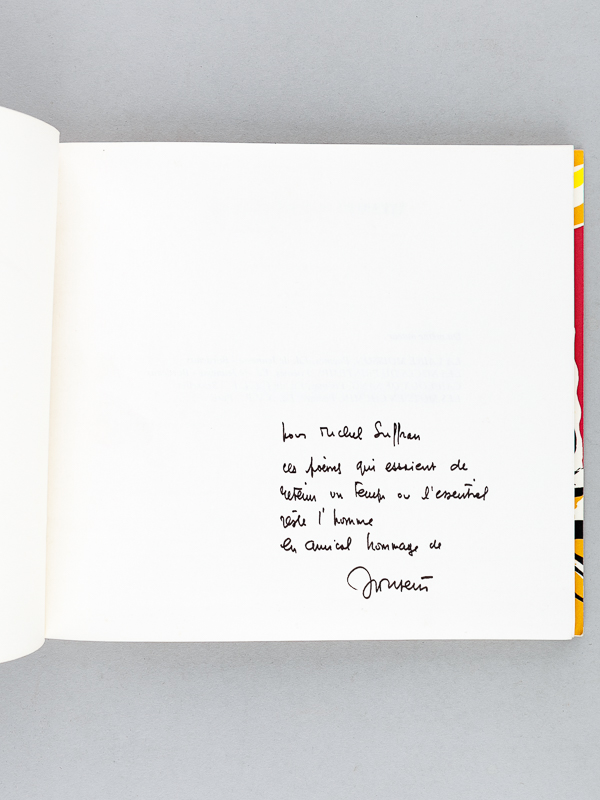 pour Michel Suffran
ces poèmes qui essaient de
retenir un temps ou l'essentiel
reste l'homme
en amical hommage de